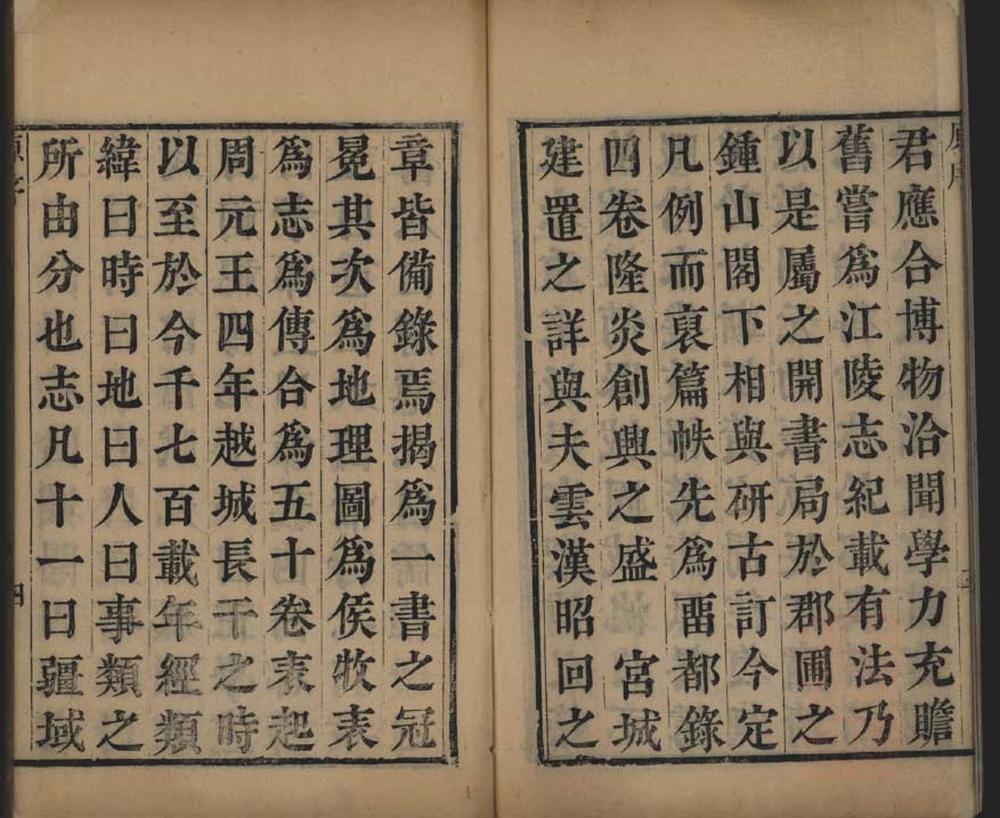 君應合博物洽聞學力充贍
舊嘗爲江陵志紀載有法乃
以是屬之開書局於郡圃之
鍾山閣下相與研古訂今定
凡例而裒篇帙先爲畱都錄
四卷隆炎創興之盛宮城
建置之詳與夫雲漢昭回之
章皆備錄焉揭爲一書之冠
冕其次爲地理圖爲侯牧表
爲志爲傳合爲五十卷表起
周元王四年越城長干之時
以至於今千七百載年經類
緯曰時曰地曰人曰事類之
所由分也志凡十一曰疆域